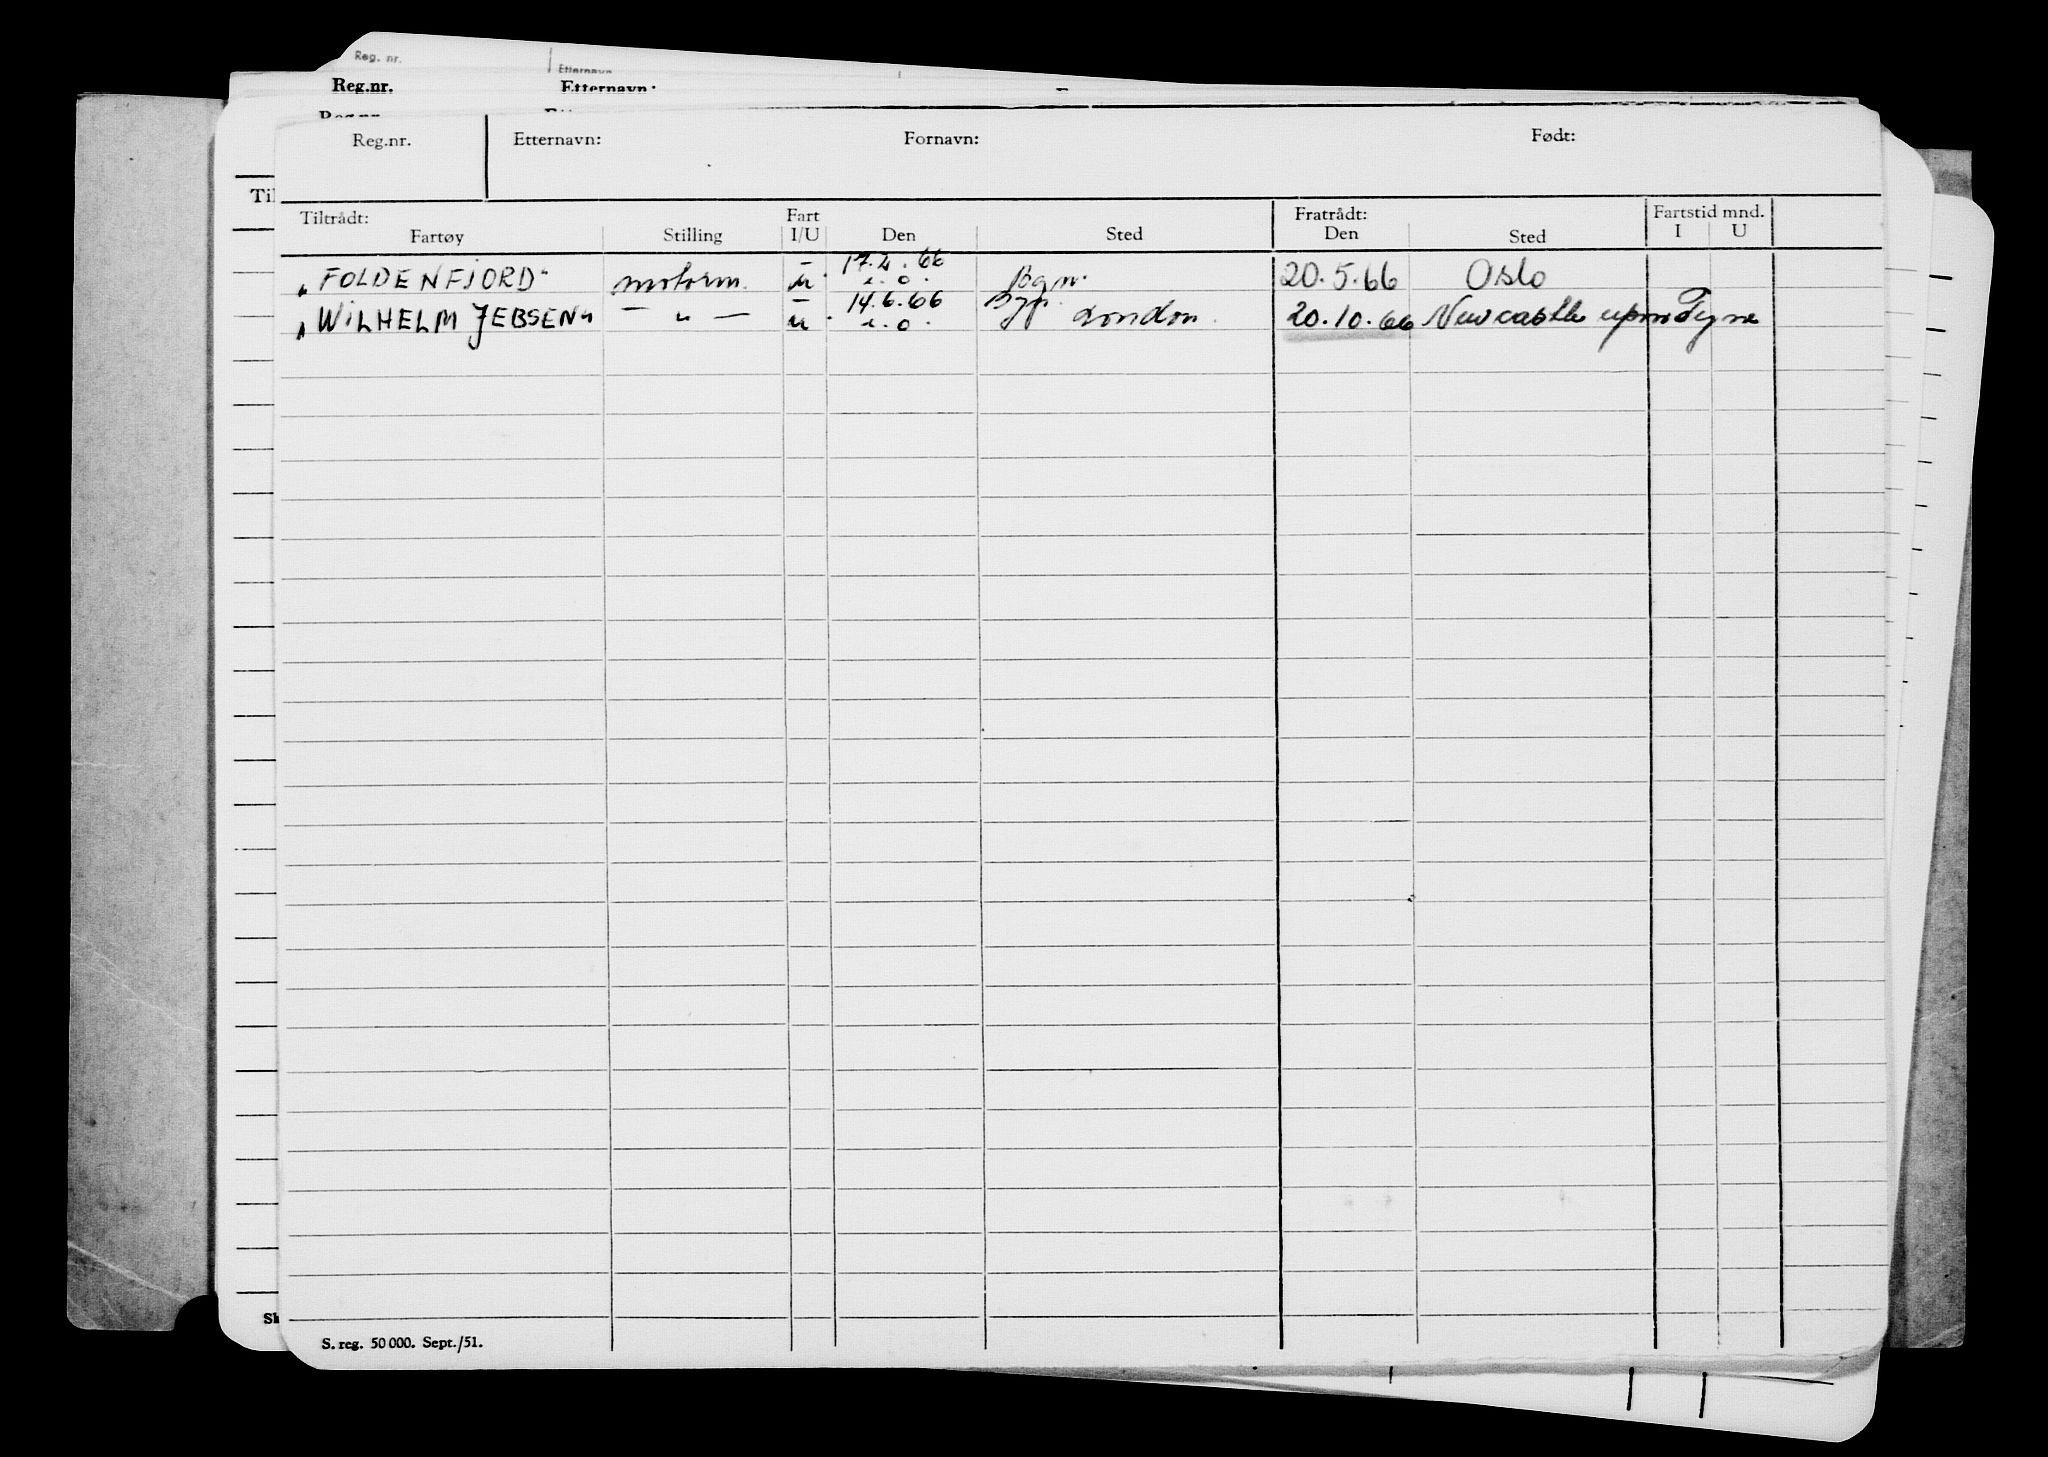 Reg. nr. Etternavn
Reg.nr. Etternavn:
Reg.nr.
Reg.nr. Etternavn: Fornavn: Født:
Til
Tiltrådt: Fart Fratrådt: Fartstid mnd.
Fartøy Stilling I/U Den Sted Den Sted I U
"FOLDENFJORD" motorm. u 17.2.66 Bgn. 20.5.66 Oslo
"WILHELM JEBSEN" — " — u 14.6.66 London. 20.10.66 Newcastle upon Tyne
S. reg. 50 000. Sept./51.